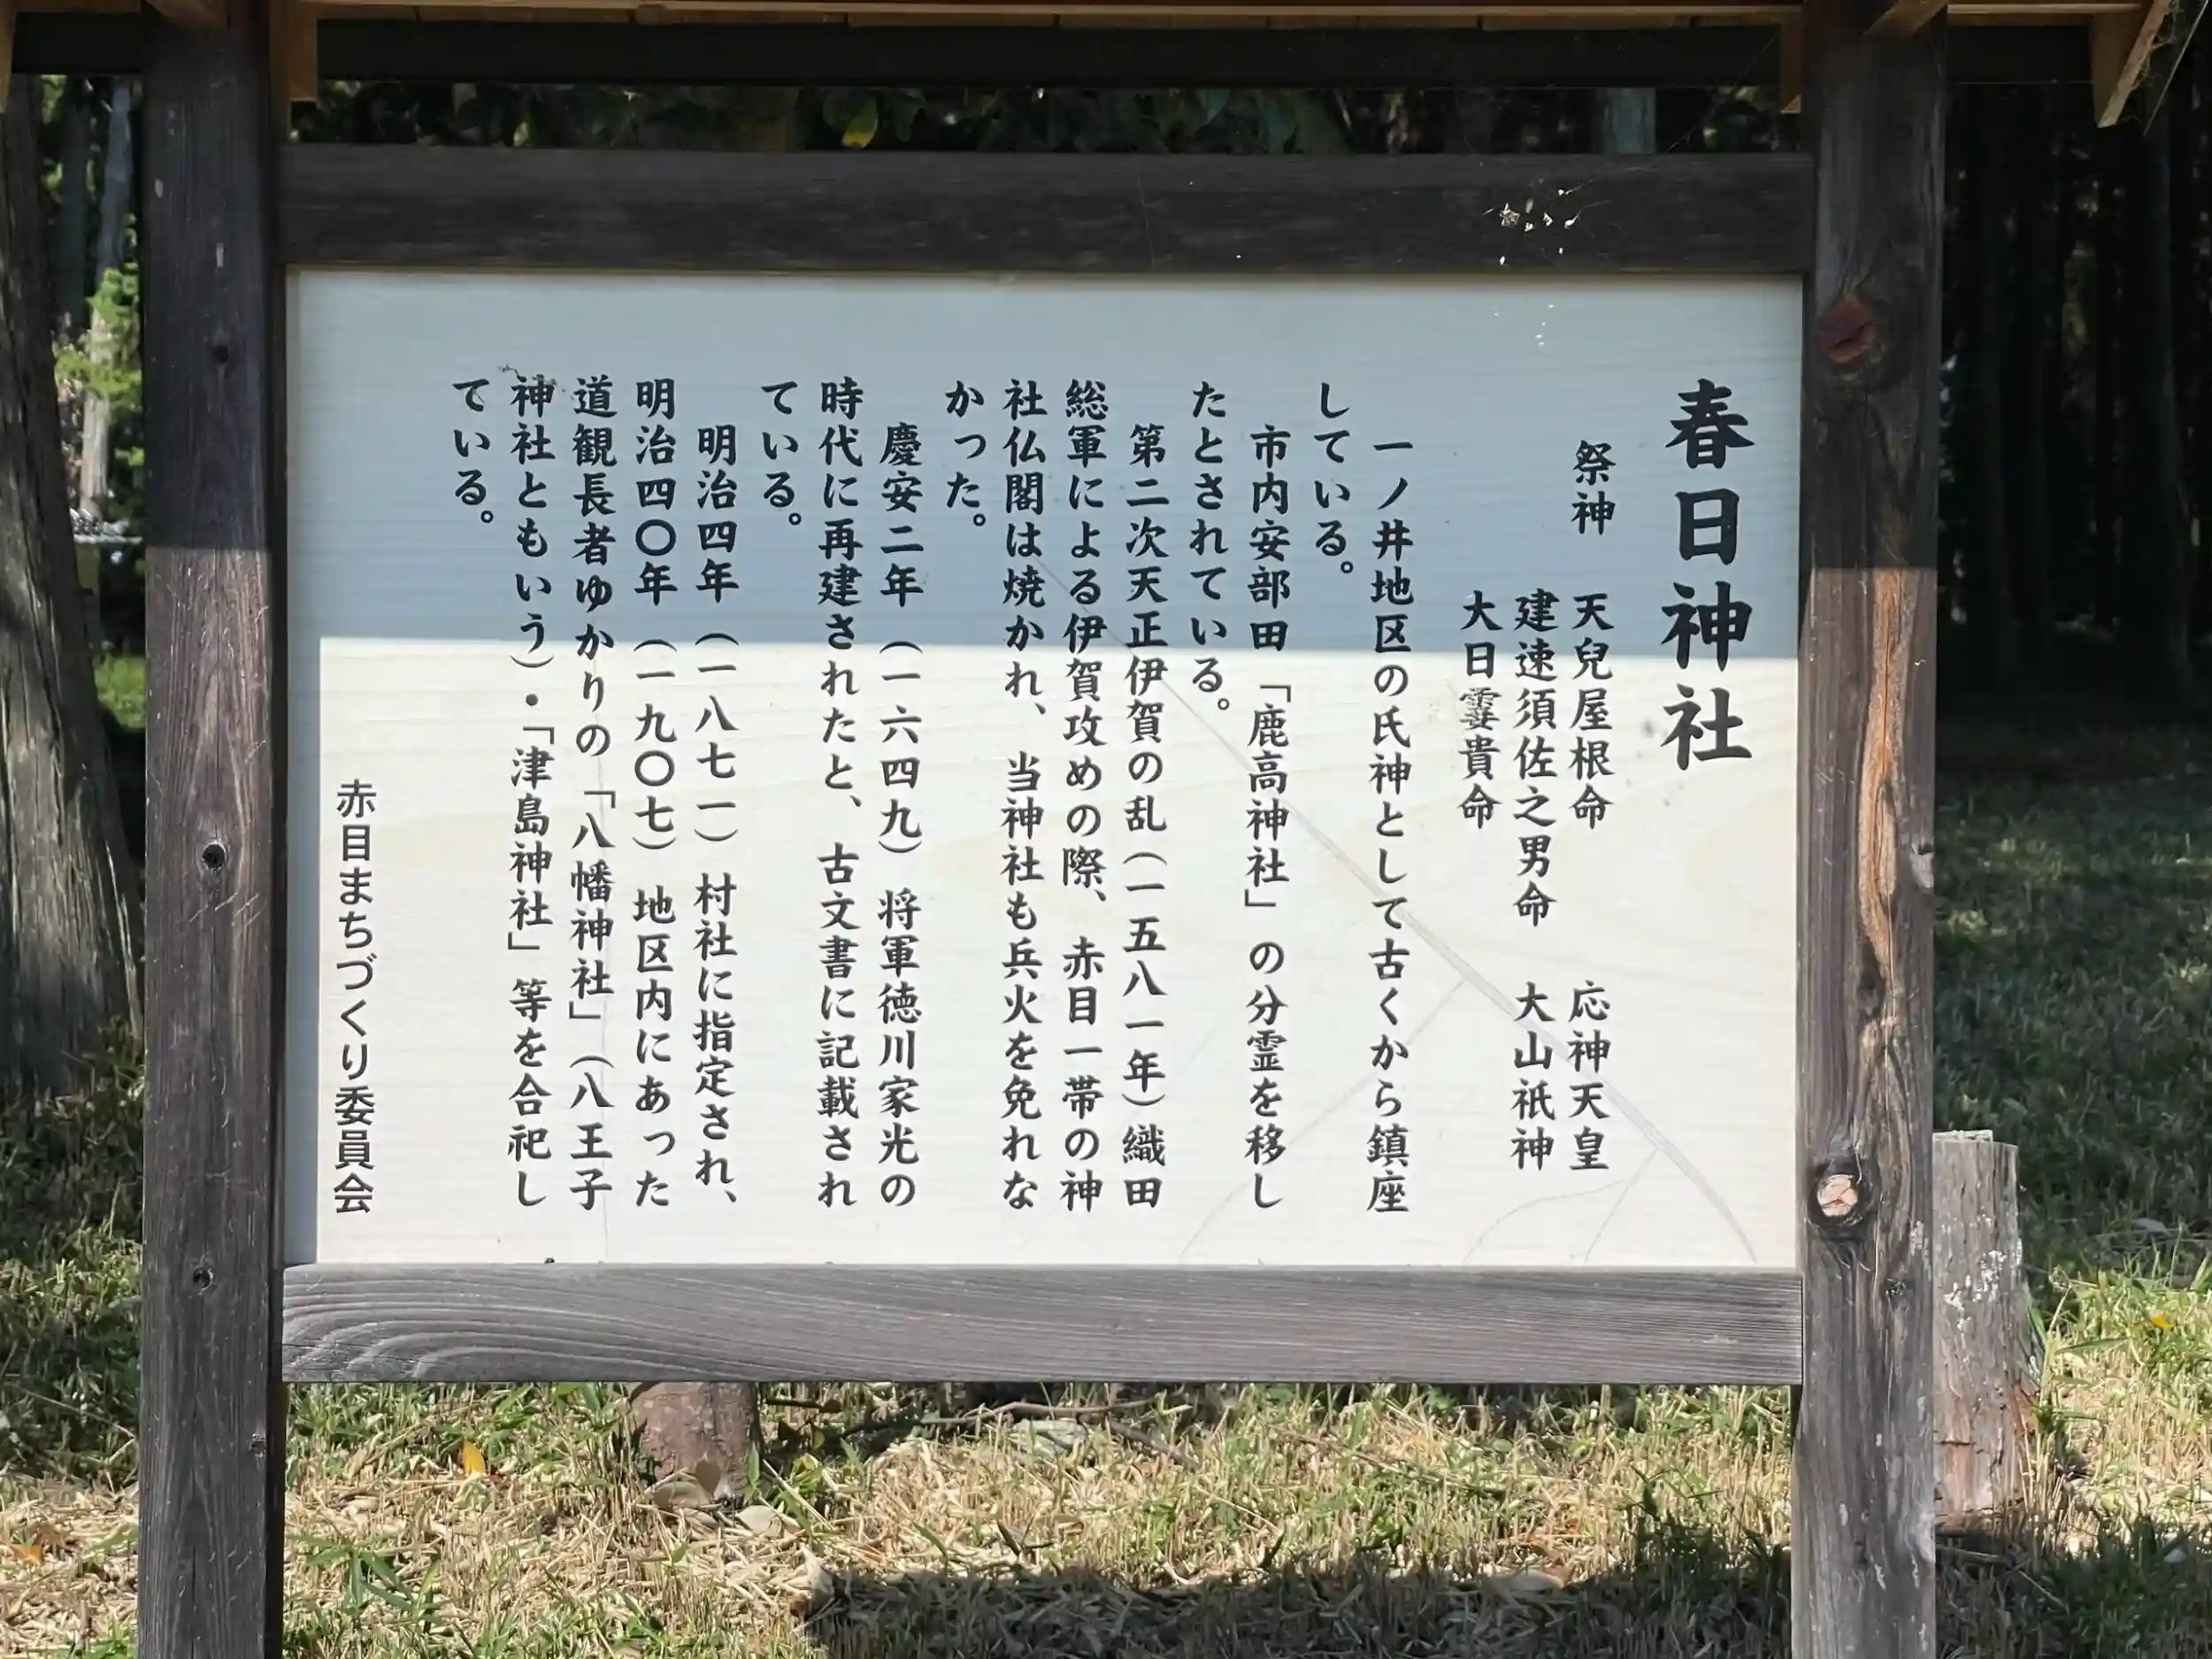 春日神社
祭神　天兒屋根命　応神天皇
建速須佐之男命　大山祇神
大日孁貴命
一ノ井地区の氏神として古くから鎮座
している。
市内安部田「鹿高神社」の分霊を移し
たとされている。
第二次天正伊賀の乱（一五八一年）織田
総軍による伊賀攻めの際、赤目一帯の神
社仏閣は焼かれ、当神社も兵火を免れな
かった。
慶安二年（一六四九）将軍徳川家光の
時代に再建されたと、古文書に記載され
ている。
明治四年（一八七一）村社に指定され、
明治四〇年（一九〇七）地区内にあった
道観長者ゆかりの「八幡神社」（八王子
神社ともいう）・「津島神社」等を合祀し
ている。
赤目まちづくり委員会